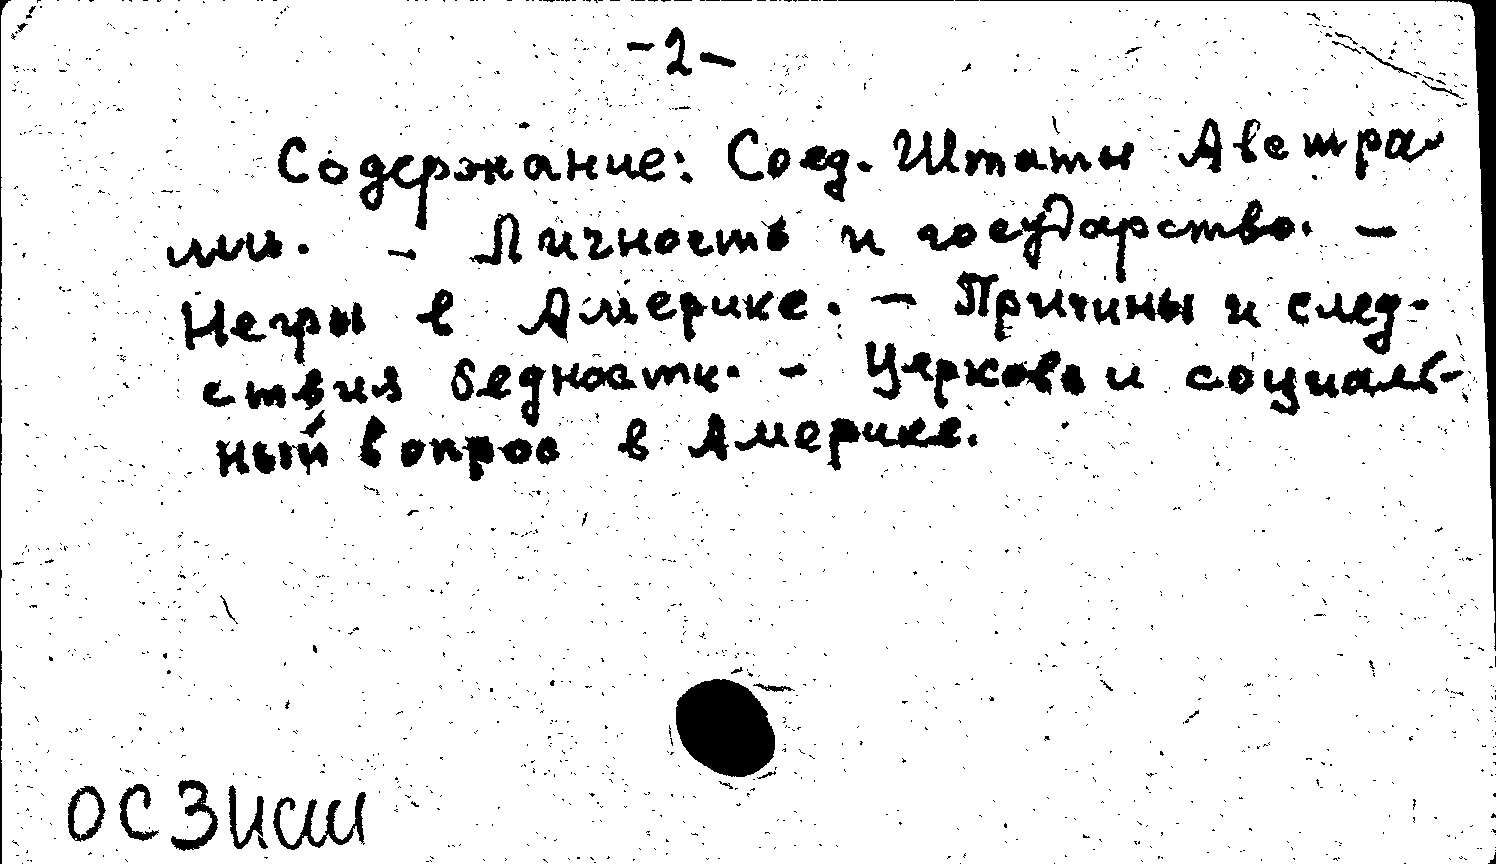 -2-
Содержание: Соед. Штаты Австра-
лии. - Личность и государство. -
Негры в Америке. - Причины и след-
ствия бедности. - Церковь и социаль-
ный вопрос в Америке.
ОСЗИШ